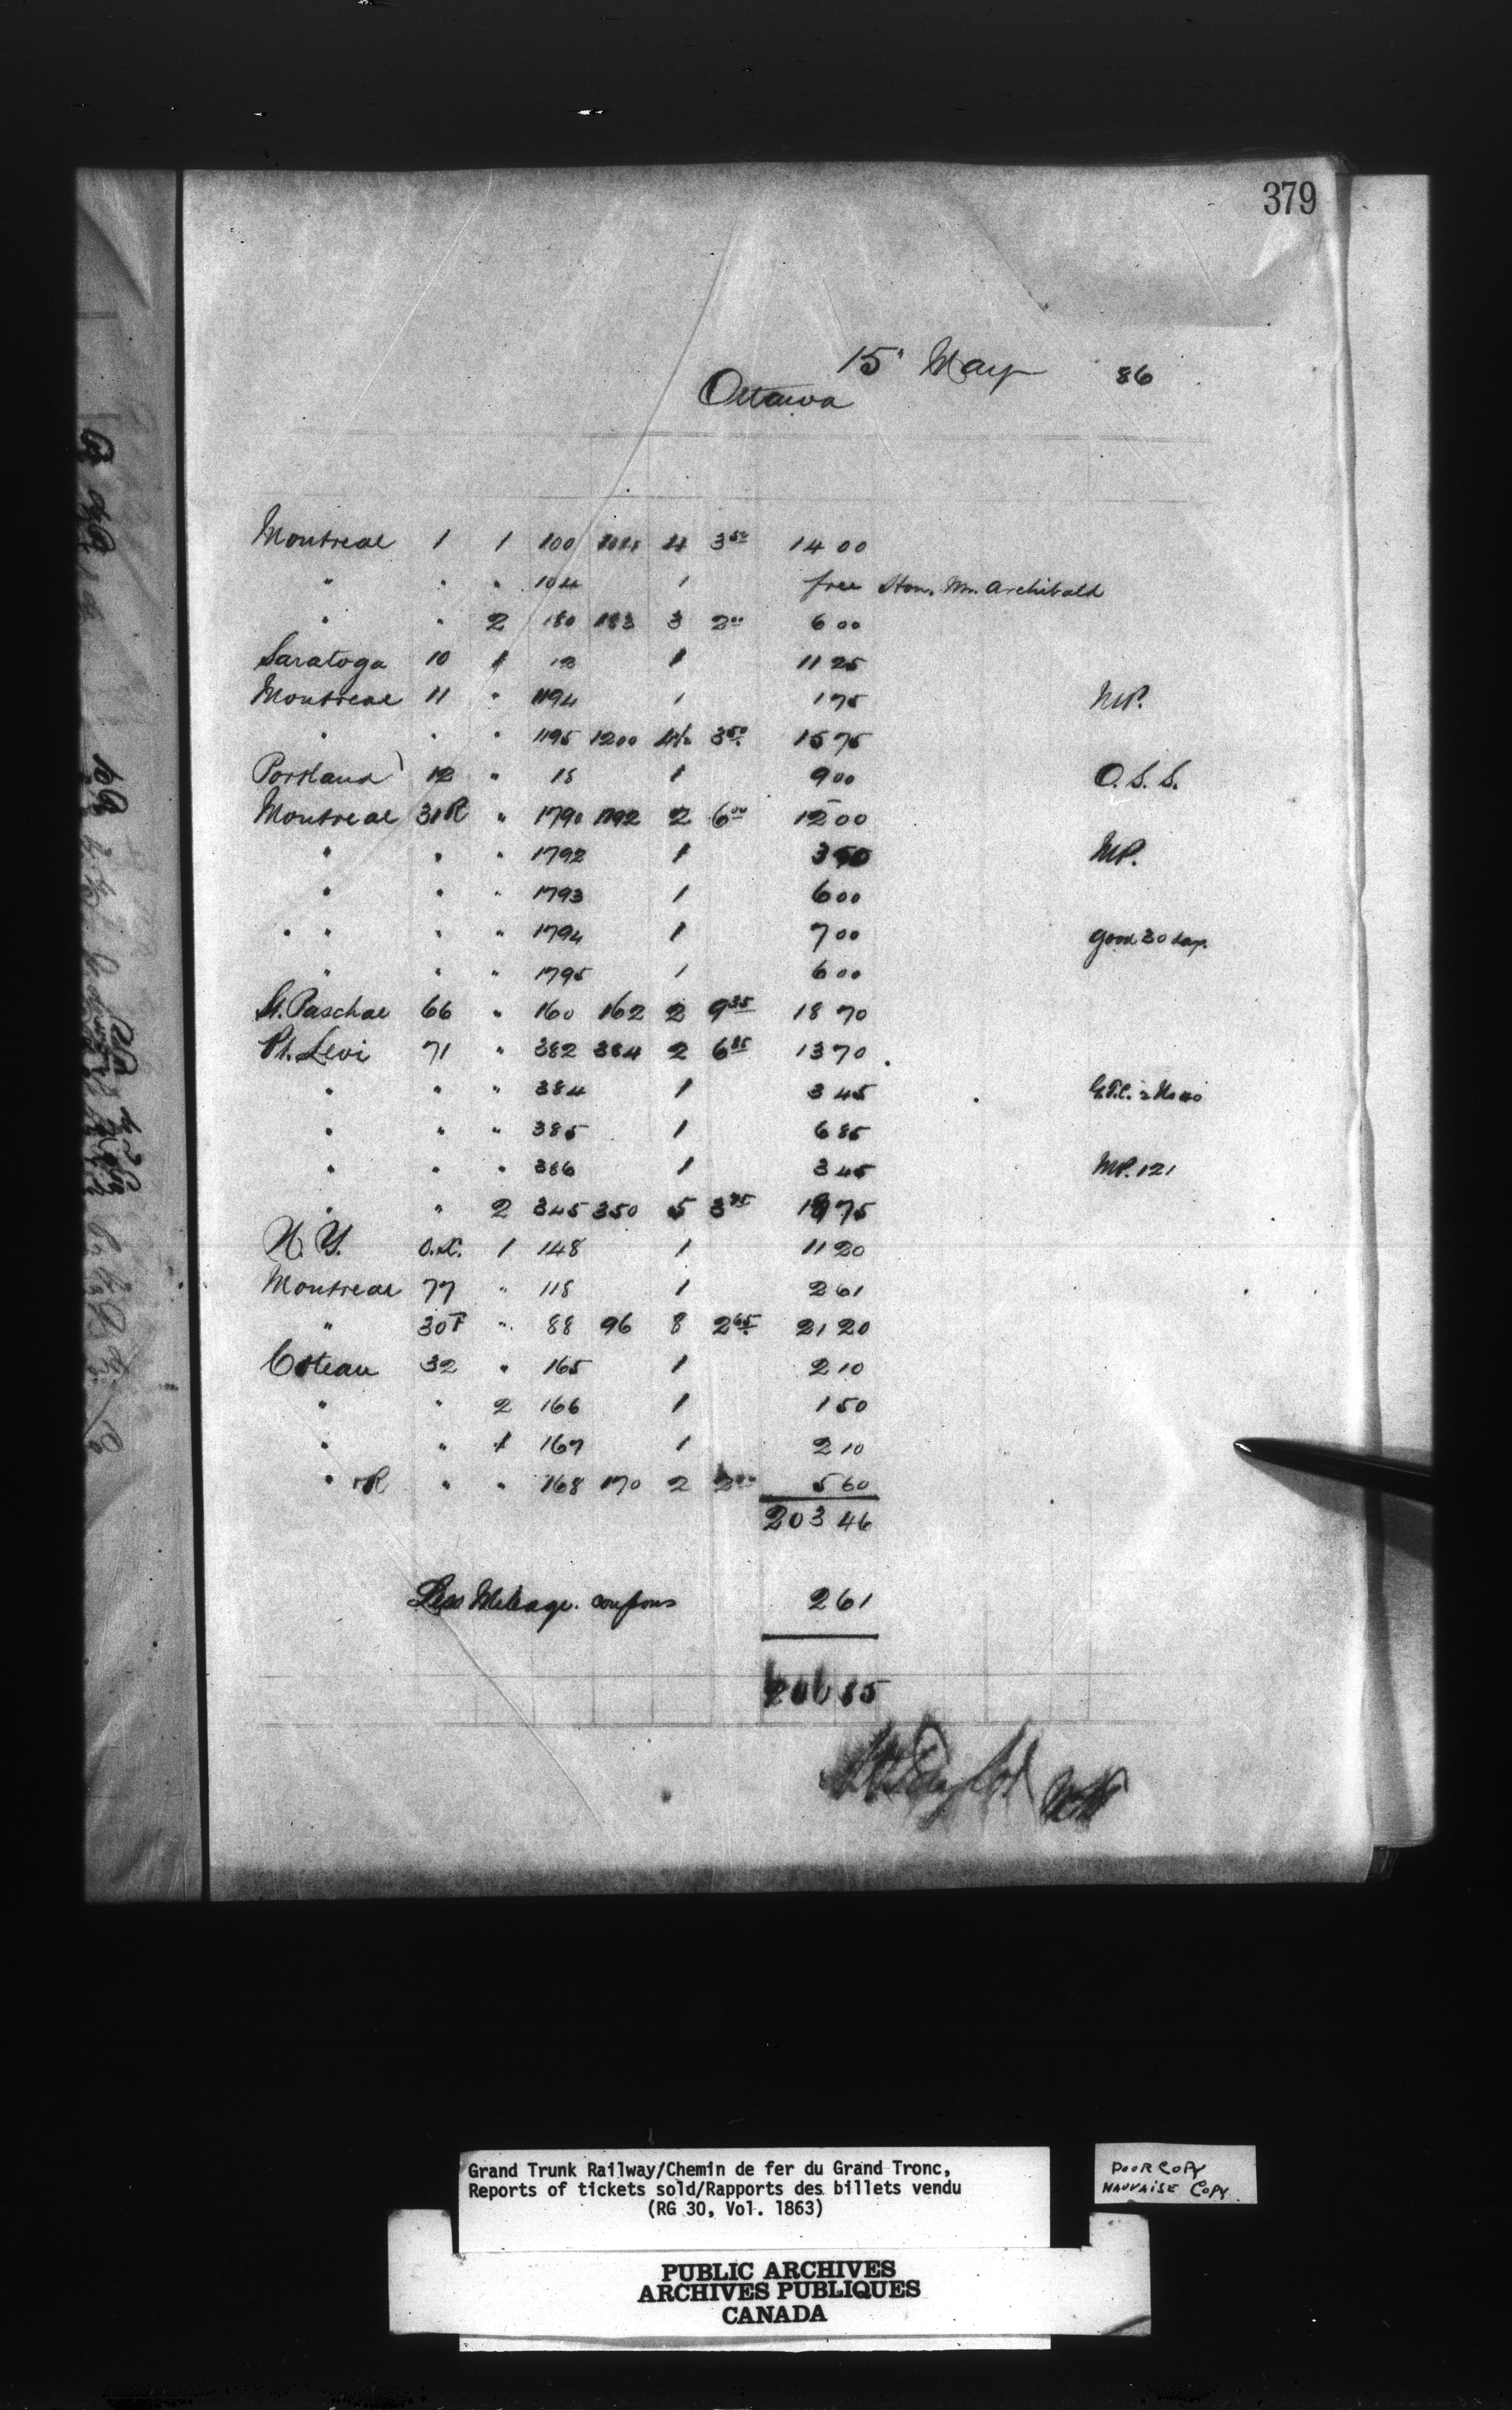 379
15' May 86
Ottawa
Montreal 1 1 100 104 4 3 50 14 00
" " " 104 1 free Hon. Mr. Archibald
" " 2 180 183 3 2 00 6 00
Saratoga 10 1 12 1 11 25
Montreal 11 " 1194 1 1 75 MP.
" " 1195 1200 4½ 3 50 15 75
Portland 12 " 18 1 9 00 O.S.S.
Montreal 31R " 1790 1792 2 6 00 12 00
" " " 1792 1 3 50 MP.
" " " 1793 1 6 00
" " " 1794 1 7 00 good 30 days.
" " " 1795 1 6 00
St. Paschal 66 " 160 162 2 9 35 18 70
Pt. Levi 71 " 382 384 2 6 85 13 70
" " " 384 1 3 45
" " " 385 1 6 85
" " " 386 1 3 45 MP. 121
" " 2 345 350 5 3 75 18 75
N.Y. 1 148 1 11 20
Montreal 77 " 118 1 2 61
" 30F " 88 96 8 2 65 21 20
Coteau 32 " 165 1 2 10
" " 2 166 1 1 50
" " 1 167 1 2 10
" R " " 168 170 2 2 80 5 60
203 46
Less Mileage coupons 2 61
200 85
Grand Trunk Railway/Chemin de fer du Grand Tronc,
Reports of tickets sold/Rapports des billets vendu
(RG 30, Vol. 1863)
POOR COPY
MAUVAISE COPY
PUBLIC ARCHIVES
ARCHIVES PUBLIQUES
CANADA